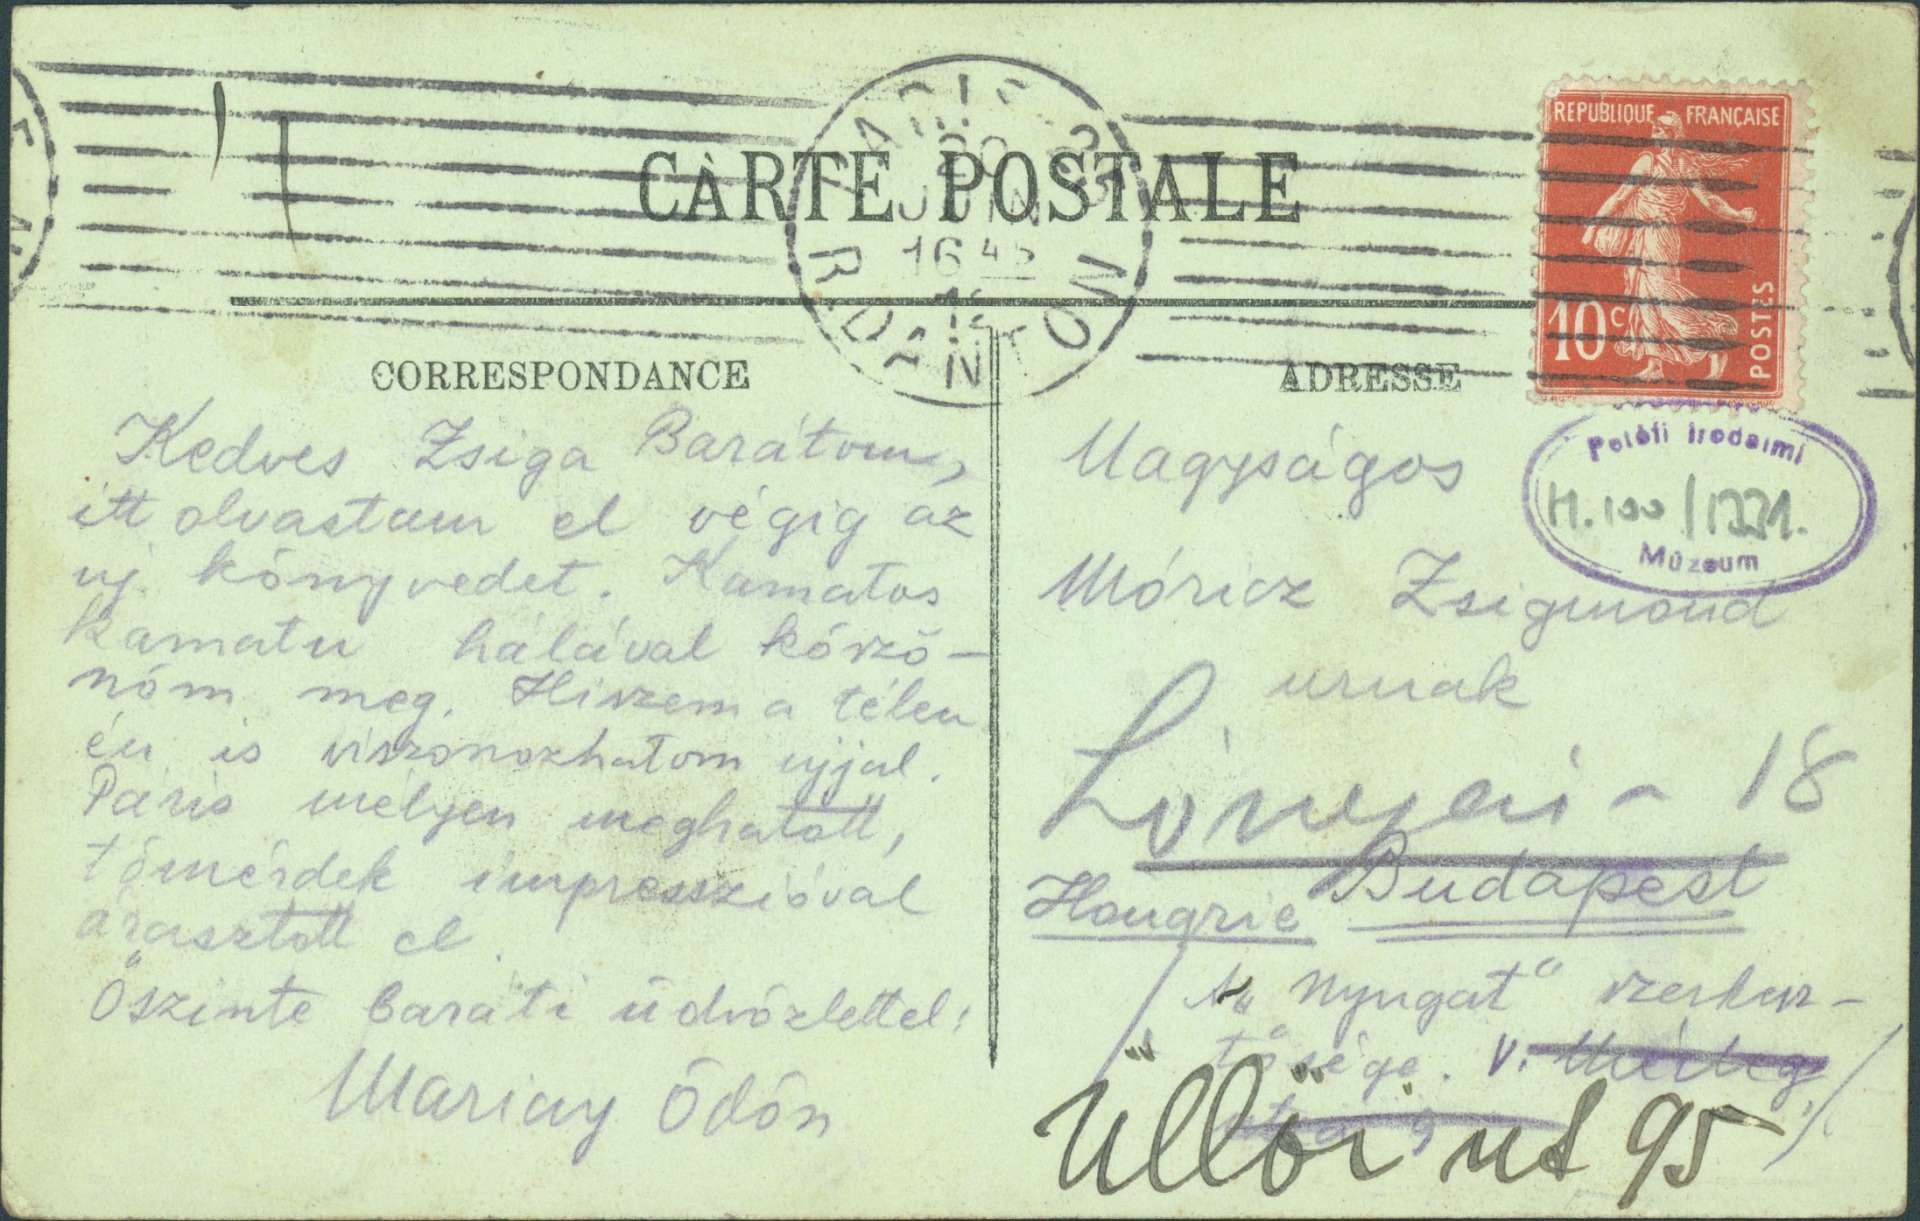 CARTE POSTALE
REPUBLIQUE FRANÇAISE
10 c
POSTES
PARIS
JUIN
16 45
R. DANTON
CORRESPONDANCE
ADRESSE
Kedves Zsiga Barátom,
itt olvastam el végig az
uj könyvedet. Kamatos
kamatu hálával köszö-
nöm meg. Hiszem a télen
én is viszonozhatom ujjal.
Páris mélyen meghatott,
tömérdek impresszióval
árasztott el.
Őszinte baráti üdvözlettel:
Mariay Ödön
Nagyságos
Móricz Zsigmond
urnak
Petőfi Irodalmi
M. 100/1331.
Múzeum
Lónyai - 18
Budapest
Hongrie
A „Nyugat" szerkesz-
tősége. V. Mérleg
9
Üllöi ut 95